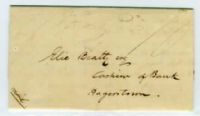 Elie Beatty esq
Cashier of Bank
Hagerstown.